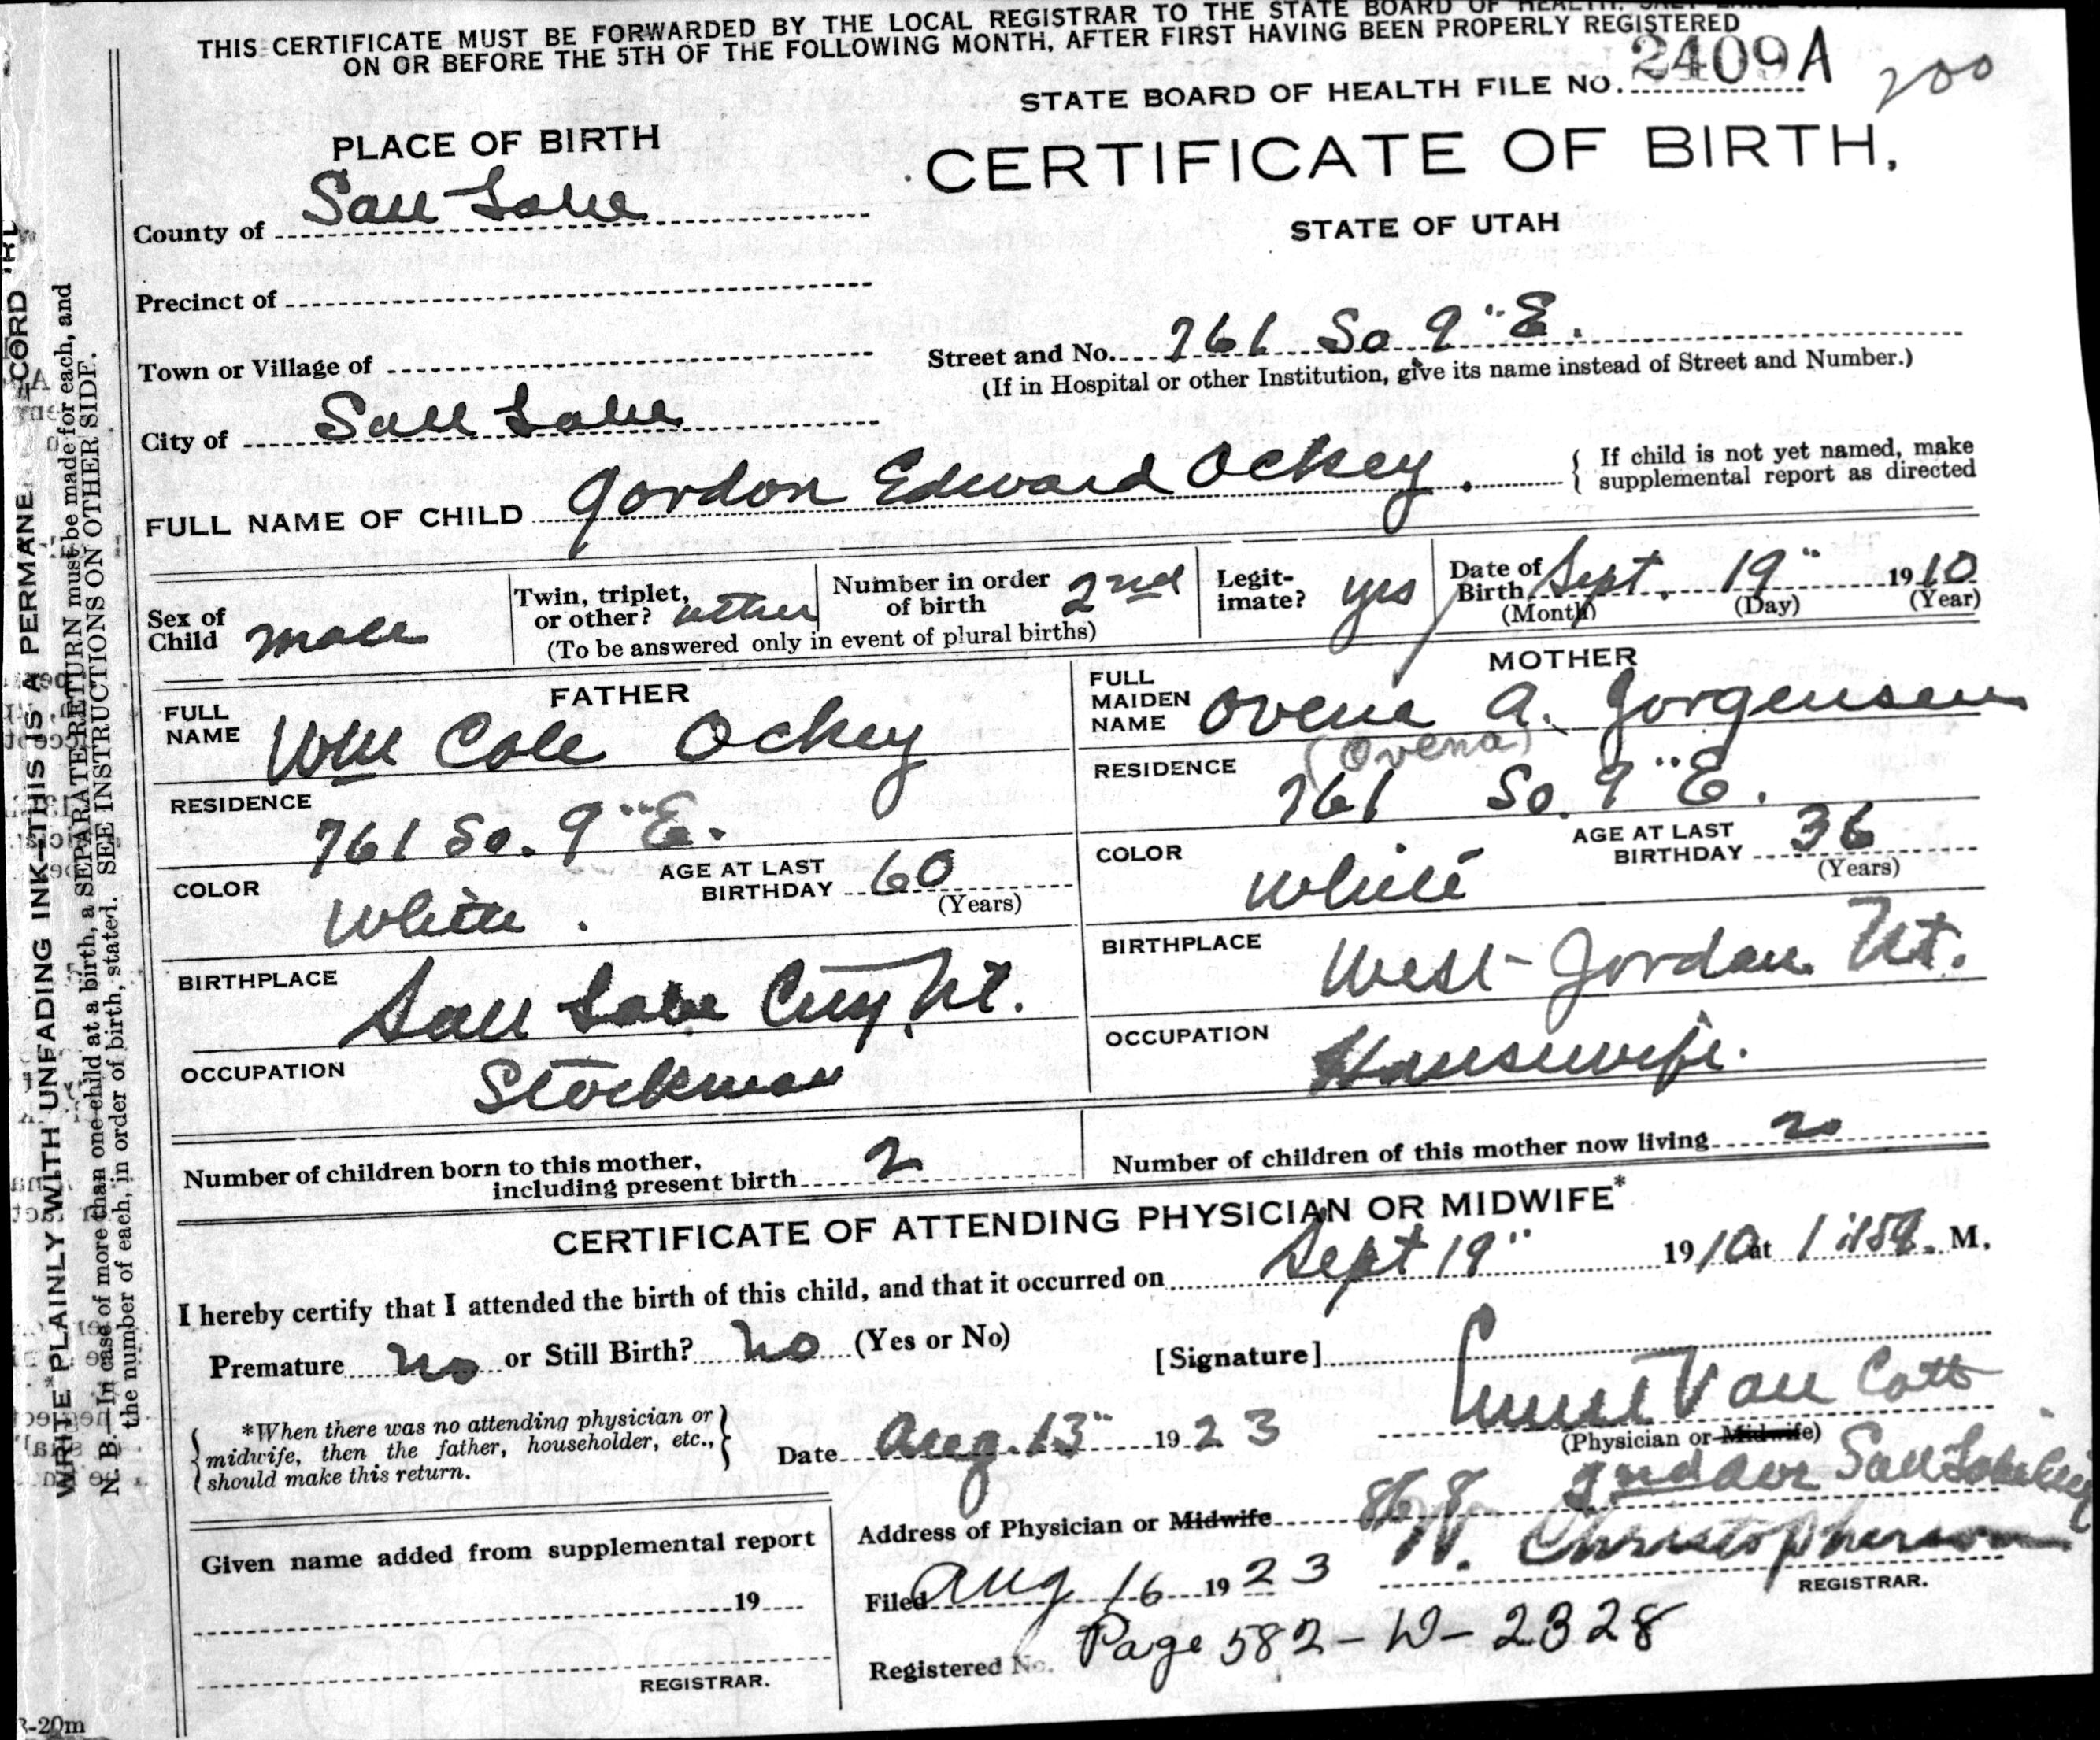 THIS CERTIFICATE MUST BE FORWARDED BY THE LOCAL REGISTRAR TO THE STATE BOARD OF HEALTH,
ON OR BEFORE THE 5TH OF THE FOLLOWING MONTH, AFTER FIRST HAVING BEEN PROPERLY REGISTERED
STATE BOARD OF HEALTH FILE NO. 2409A 200
PLACE OF BIRTH
CERTIFICATE OF BIRTH,
STATE OF UTAH
County of Salt Lake
Precinct of
Town or Village of
Street and No. 761 So 9" E.
(If in Hospital or other Institution, give its name instead of Street and Number.)
City of Salt Lake
FULL NAME OF CHILD Gordon Edward Ockey.
If child is not yet named, make
supplemental report as directed
Sex of
Child male
Twin, triplet,
or other? other
Number in order
of birth 2nd
(To be answered only in event of plural births)
Legit-
imate? yes
Date of
Birth Sept. 19" 1910
(Month) (Day) (Year)
FATHER
FULL
NAME Wm Cole Ockey
RESIDENCE
761 So. 9" E.
COLOR White.
AGE AT LAST
BIRTHDAY 60
(Years)
BIRTHPLACE
Salt Lake City, Ut.
OCCUPATION
Stockman
MOTHER
FULL
MAIDEN
NAME Ovene A. Jorgensen
(Ovena)
RESIDENCE
761 So. 9" E.
COLOR White
AGE AT LAST
BIRTHDAY 36
(Years)
BIRTHPLACE
West Jordan Ut.
OCCUPATION
Housewife.
Number of children born to this mother,
including present birth 2
Number of children of this mother now living
CERTIFICATE OF ATTENDING PHYSICIAN OR MIDWIFE*
I hereby certify that I attended the birth of this child, and that it occurred on Sept 19" 1910 at M.
Premature no or Still Birth? no (Yes or No)
[Signature] Van Cott
(Physician or Midwife)
*When there was no attending physician or
midwife, then the father, householder, etc.,
should make this return.
Date Aug. 13" 1923
Address of Physician or Midwife Salt Lake City
Given name added from supplemental report
19
REGISTRAR.
Filed Aug 16 1923
Christopherson
REGISTRAR.
Registered No. Page 582-W-2328
WRITE PLAINLY WITH UNFADING INK—THIS IS A PERMANE
N. B.—In case of more than one child at a birth, a SEPARATE RETURN must be made for each, and
the number of each, in order of birth, stated. SEE INSTRUCTIONS ON OTHER SIDE.
-20m